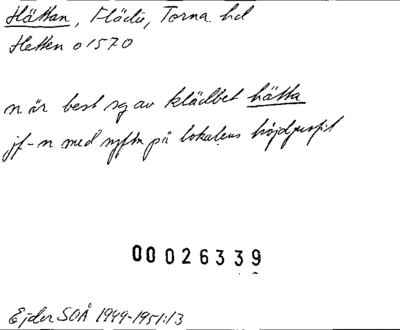 Hättan, Flädie, Torna hd
Hetten o 1570
n är best sg av klädbet hätta
jf-n med syftn på lokalens höjdprofil
00026339
Ejder SOÅ 1949-1951:13